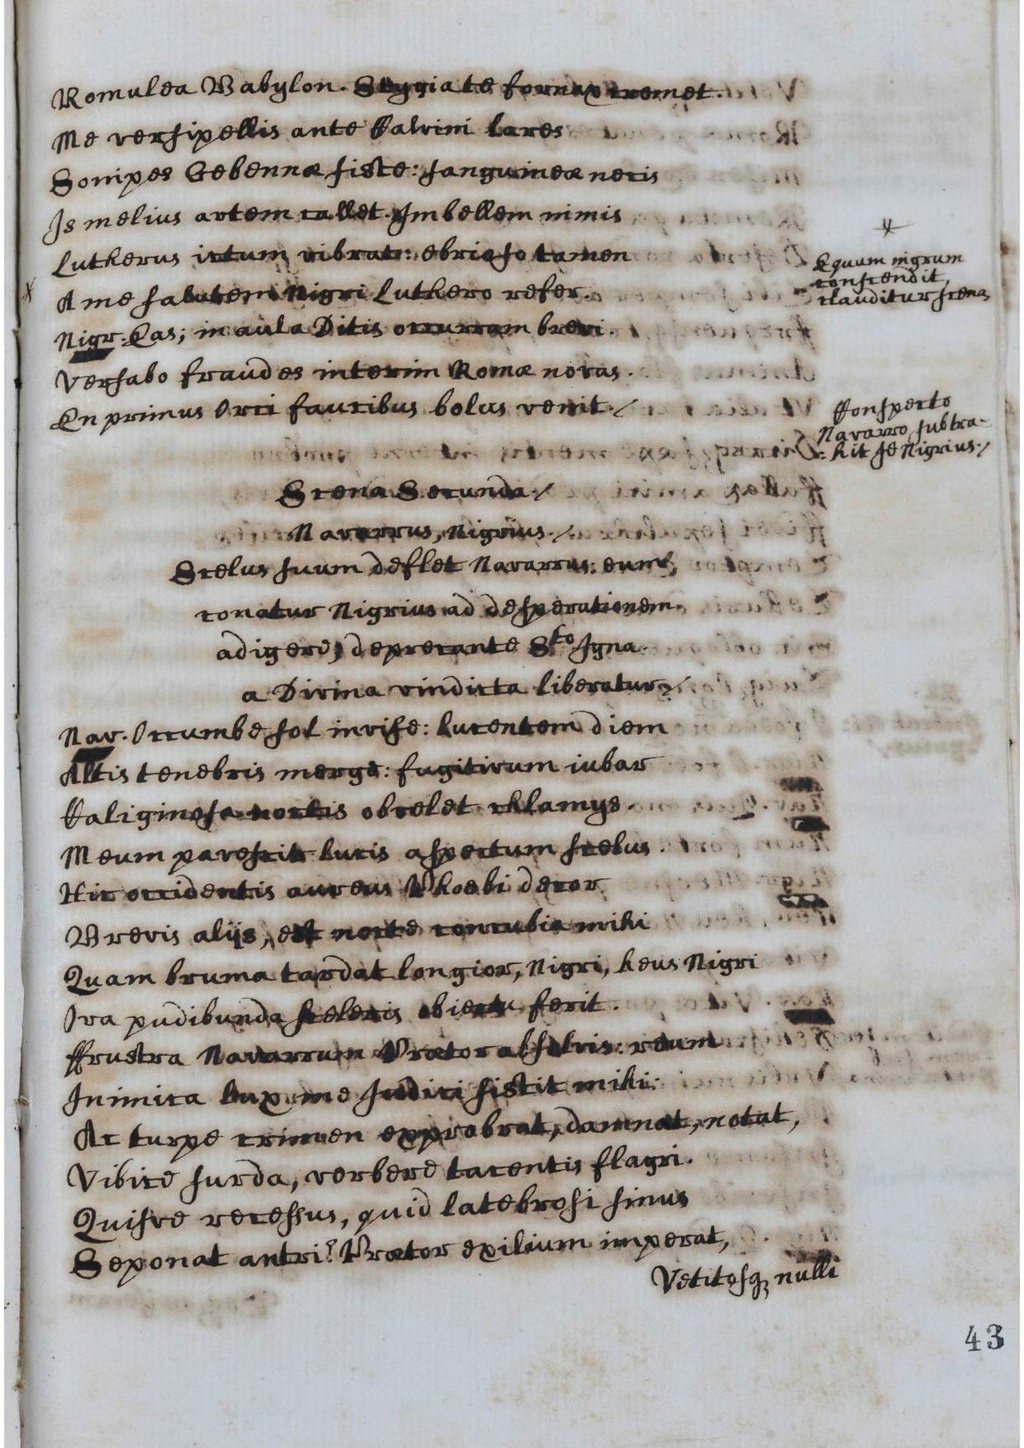 Romulea Babylon. Stygia te fornax cremet.
Me versipellis ante Calvini lares
Sonipes Gebennæ siste: sanguineæ necis
Is melius artem callet. Imbellem nimis
Lutherus ictum vibrat: ebrioso tamen
A me salutem Nigri Luthero refer.
Nigr. Eas; in aula Ditis occurram brevi.
Versabo fraudes interim Romæ novas.
En primus Orci faucibus bolus venit./
*
Equum nigrum
conscendit,
clauditur scena
Conspecto
Navarro subtra-
hit se Nigrius./
Scena Secunda./
Navarrus, Nigrius./
Scelus suum deflet Navarrus: eum
conatur Nigrius ad desperationem
adigere; deprecante Sto Igna.
a Divina vindicta liberatur./
Nav. Occumbe sol invise: lucentem diem
Altis tenebris merge: fugitivum iubar
Caliginosa noctis obvelet chlamys.
Meum pavescit lucis aspectum scelus.
Hic occidentis aureus Phoebi decor
Brevis aliis, est nocte concubia mihi
Quam bruma tardat longior, Nigri, heus Nigri
Ora pudibunda sceleris obiectu ferit.
ffrustra Navarrum Prætor absolvis: reum
Inimica lux me Iudici sistit mihi:
Ac turpe crimen exprobrat, damnat, notat,
Vibice surda, verbere tacentis flagri.
Quisve recessus, quid latebrosi sinus
Seponat antri? Prætor exilium imperat,
Vetitosq; nulli
43